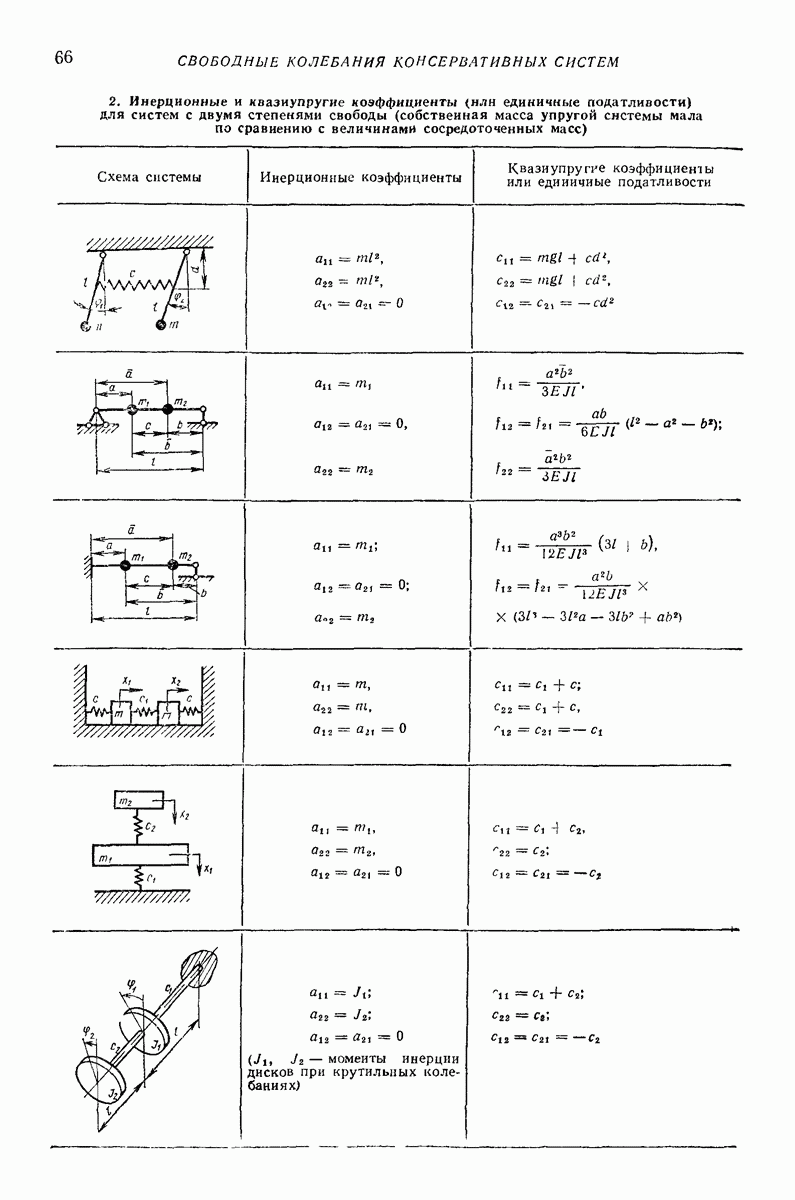 66
СВОБОДНЫЕ КОЛЕБАНИЯ КОНСЕРВАТИВНЫХ СИСТЕМ
2. Инерционные и квазиупругие коэффициенты (или единичные податливости)
для систем с двумя степенями свободы (собственная масса упругой системы мала
по сравнению с величинами сосредоточенных масс)
Схема системы
Инерционные коэффициенты
Квазиупругие коэффициенты
или единичные податливости
l c d
φ₁ l φ₂
m
a₁₁ = ml²,
a₂₂ = ml²,
a₁₂ = a₂₁ = 0
c₁₁ = mgl + cd²,
c₂₂ = mgl + cd²,
c₁₂ = c₂₁ = — cd²
a̅
a m₁ m₂
c b
b̅
l
a₁₁ = m₁
a₁₂ = a₂₁ = 0,
a₂₂ = m₂
f₁₁ = a²b̅² / 3EJl ,
f₁₂ = f₂₁ = ab / 6EJl (l² — a² — b²);
f₂₂ = a̅²b² / 3EJl
a̅
a m₁ m₂
c b
b̅
l
a₁₁ = m₁;
a₁₂ = a₂₁ = 0;
a₂₂ = m₂
f₁₁ = a³b² / 12EJl³ (3l + b),
f₁₂ = f₂₁ = a²b / 12EJl³ ×
× (3l³ — 3l²a — 3lb² + ab²)
x₁ x₂
c m c₁ m c
a₁₁ = m,
a₂₂ = m,
a₁₂ = a₂₁ = 0
c₁₁ = c₁ + c;
c₂₂ = c₁ + c,
c₁₂ = c₂₁ = — c₁
m₂ x₂
c₂
m₁ x₁
c₁
a₁₁ = m₁,
a₂₂ = m₂,
a₁₂ = a₂₁ = 0
c₁₁ = c₁ + c₂,
c₂₂ = c₂;
c₁₂ = c₂₁ = —c₂
φ₁ c₁
φ₂ c₂ J₁ l
J₂ l
a₁₁ = J₁;
a₂₂ = J₂;
a₁₂ = a₂₁ = 0
(J₁, J₂ — моменты инерции
дисков при крутильных коле-
баниях)
c₁₁ = c₁ + c₂;
c₂₂ = c₂;
c₁₂ = c₂₁ = —c₂